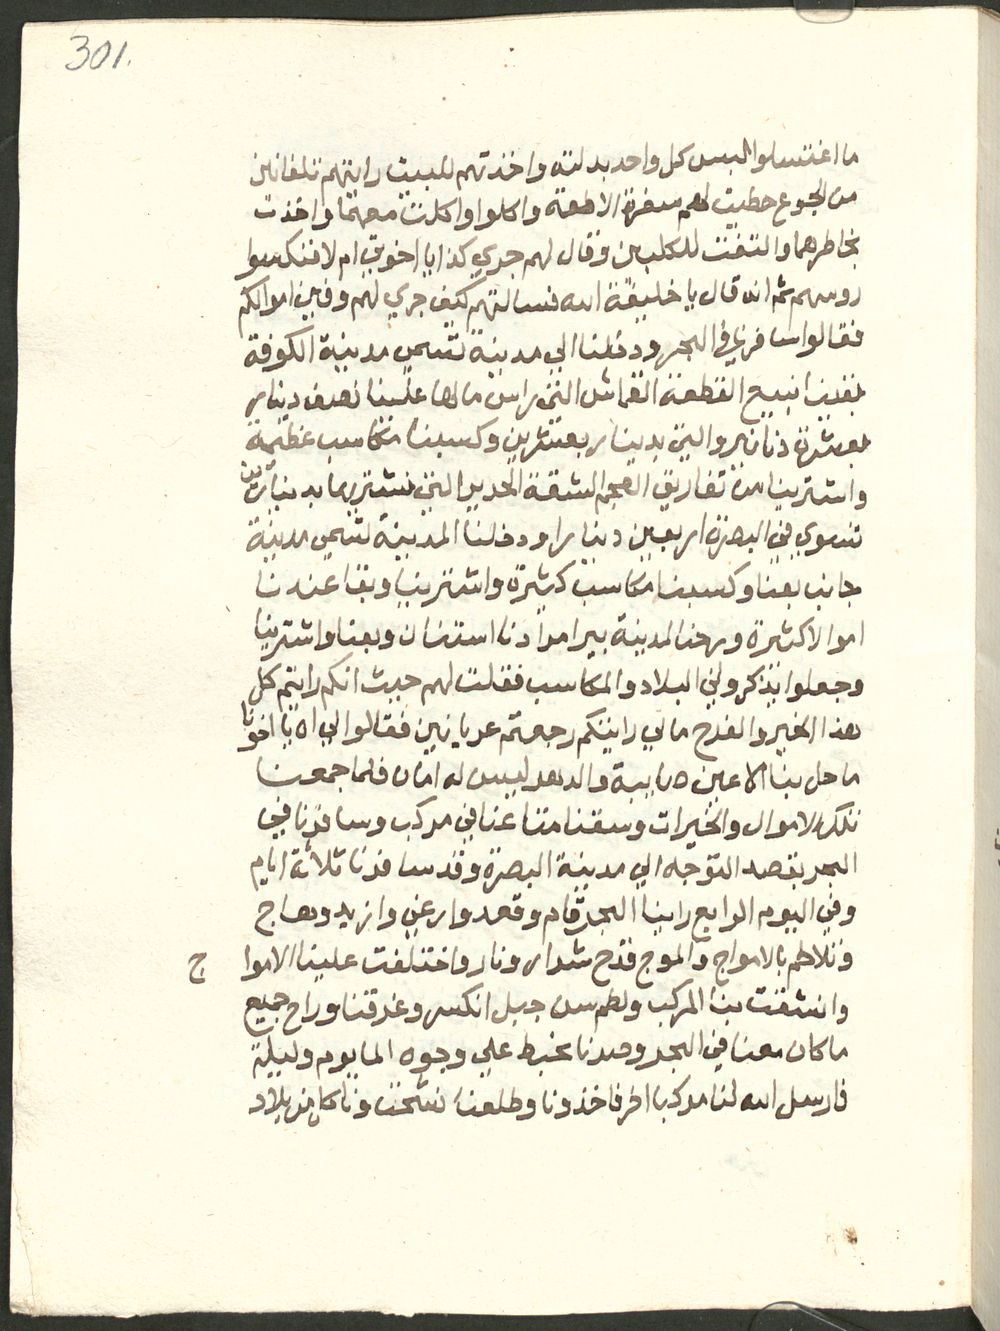 301.
ما اغتسلوا البس كل واحد بدلته واخذتهم للبيت رايتهم تلفانين
من الجوع حطيت لهم سفرة الاطعمة واكلوا واكلت معهما واخذت
بخاطرهما والتفت للكلبين وقال لهم جري كذا يا اخوتي ام لا فنكسوا
روسهم ثم انه قال يا خليفة الله فسالتهم كيف جري لهم وفين اموالكم
فقالوا سافرنا في البحر ودخلنا الي مدينة تسمي مدينة الكوفة
بقينا نبيع القطعة القماش التي راس مالها علينا نصف دينار
بعشرة دنانير والتي بدينار بعشرين وكسبنا مكاسب عظيمة
واشترينا من تفاريق العجم الشقة الحرير التي نشتريها بدينارين
تسوي في البصرة اربعين دينارا ودخلنا المدينة تسمي مدينة
جانب بعنا وكسبنا مكاسب كثيرة واشترينا وبقا عندنا
اموالا كثيرة ورحنا المدينة وبعنا واشترينا
وجعلوا يذكرولي البلاد والمكاسب فقلت لهم حيث انكم رايتم كل
هذا الخير والفرح مالي رايتكم رجعتم عريانين فقالوا لي اه يا اخونا
ما حل بنا الا عين صايبة والدهر ليس له امان فلما جمعنا
تلك الاموال والخيرات وسقنا متاعنا في مركب وسافرنا في
البحر بقصد التوجه الي مدينة البصرة وقد سافرنا ثلاثة ايام
وفي اليوم الرابع راينا البحر قام وقعد وارغي وازبد وهاج
وتلاطم بالامواج والموج قدح شرار ونار واختلفت علينا الاموا ج
وانشقت بنا المركب ولطم سن جبل انكسر وغرقنا وراح جميع
ما كان معنا في البحر وصرنا نخبط علي وجوه الما يوم وليلة
فارسل الله لنا مركبا اخر فاخذونا وطلعنا نشحت من بلاد